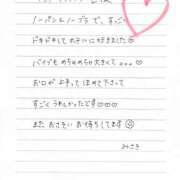 ノーパンとノーブラで、すごく
ドキドキして お子いに行きました♡
バイブも めちゃめちゃ大きくて 。。。♡
お口が 上手って ほめて下さって
すごく うれしかったです♡♡♡
また おさそい お待ちしてます☺
みさき